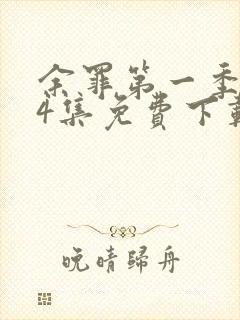 余罪第一季
4集免費下載
晚晴歸舟